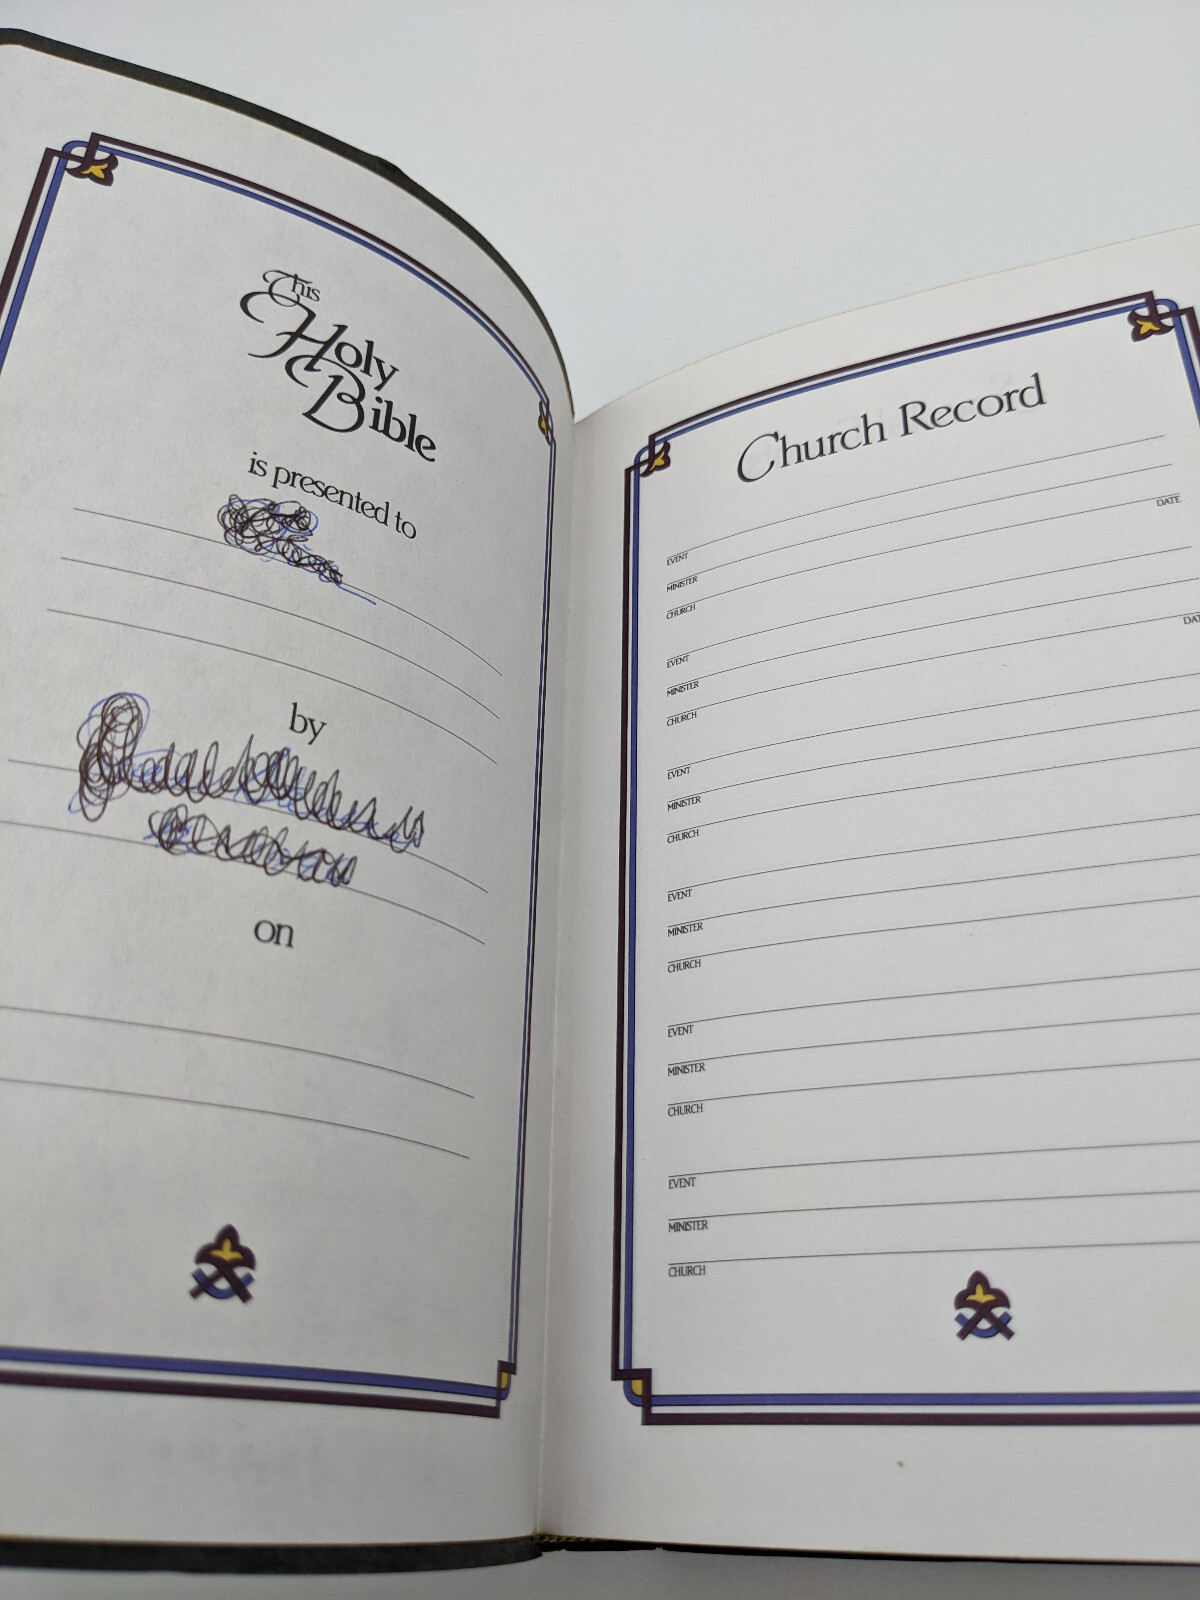 This
Holy
Bible
is presented to
by
on
Church Record
EVENT
DATE
MINISTER
CHURCH
EVENT
DATE
MINISTER
CHURCH
EVENT
MINISTER
CHURCH
EVENT
MINISTER
CHURCH
EVENT
MINISTER
CHURCH
EVENT
MINISTER
CHURCH